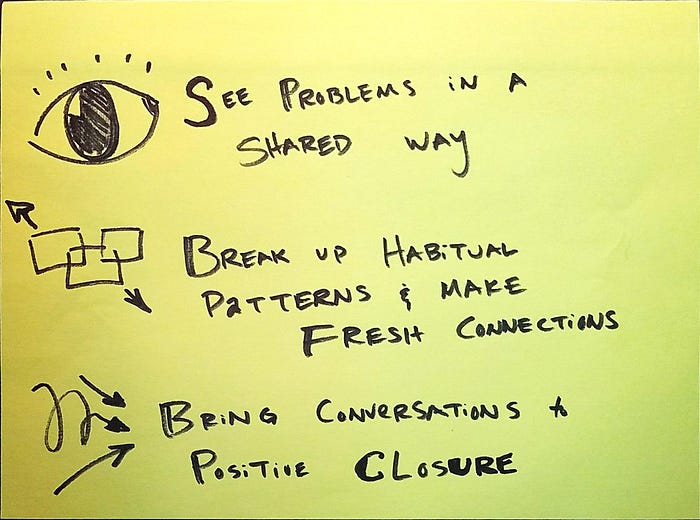 See Problems in a
Shared way
Break up Habitual
Patterns & make
Fresh Connections
Bring Conversations to
Positive Closure